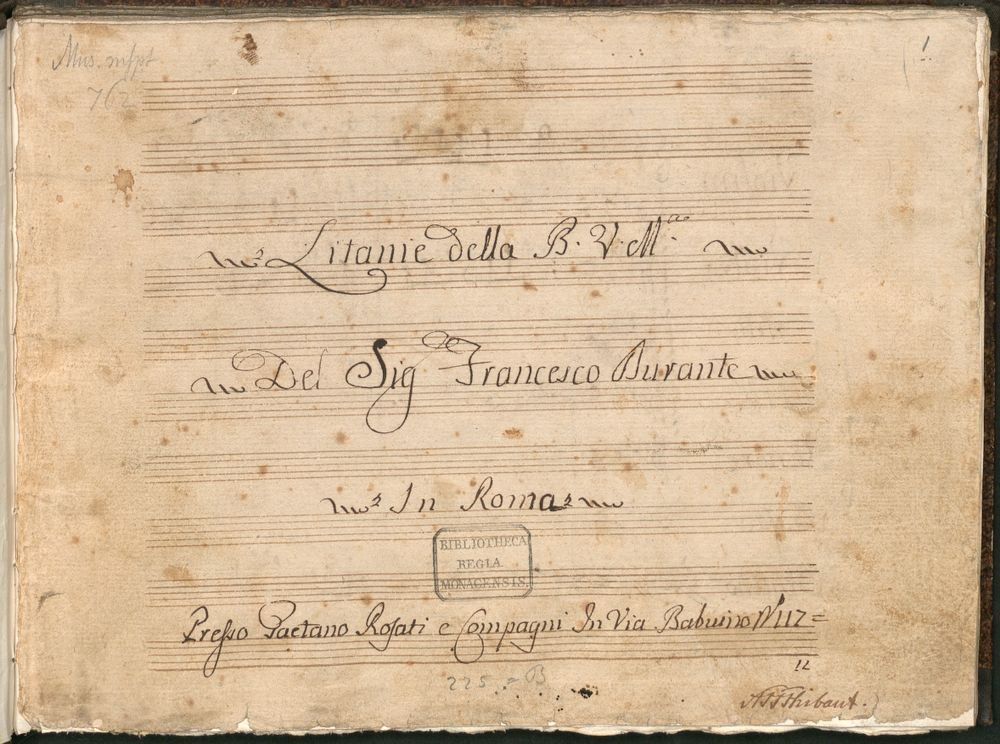 Mus. mspt
762
1
Litanie della B. V. M.ª
Del Sig Francesco Durante
In Roma
BIBLIOTHECA
REGIA
MONACENSIS.
Presso Gaetano Rosati e Compagni In Via Babuino N 117 =
12
225. = B
AFJThibaut.